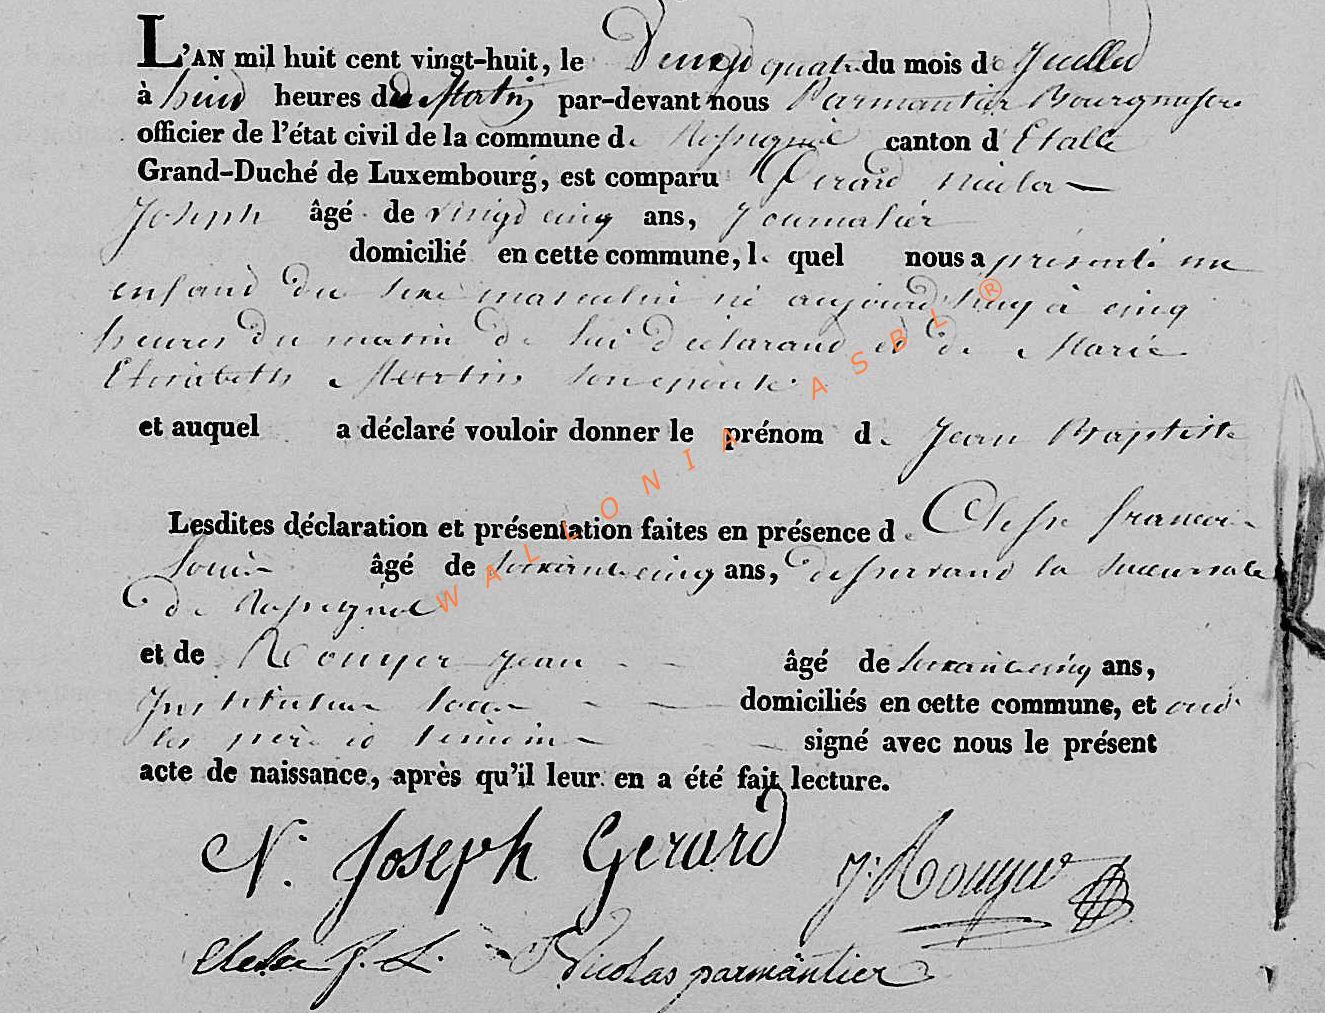 L'AN mil huit cent vingt-huit, le Vingt quatre du mois de Juillet
à huit heures du Matin par-devant nous Parmantier Bourgmestre
officier de l'état civil de la commune de Rossignol canton d'Etalle
Grand-Duché de Luxembourg, est comparu Gerard Nicolas
Joseph âgé de vingt cinq ans, Journalier
domicilié en cette commune, le quel nous a présenté un
enfant du sexe masculin né aujourd'huy à cinq
heures du matin de lui déclarant et de Marie
Elisabeth Martin son epouse
et auquel a déclaré vouloir donner le prénom de Jean Baptiste
Lesdites déclaration et présentation faites en présence de Clesse francois
Louis âgé de soixante cinq ans, desservant la succursale
de Rossignol
et de Rouyer Jean âgé de soixante cinq ans,
Instituteur tous domiciliés en cette commune, et ont
les père et temoins signé avec nous le présent
acte de naissance, après qu'il leur en a été fait lecture.
N. Joseph Gerard J. Rouyer
Clesse f. L. Nicolas parmantier
WALLONIA ASBL ®